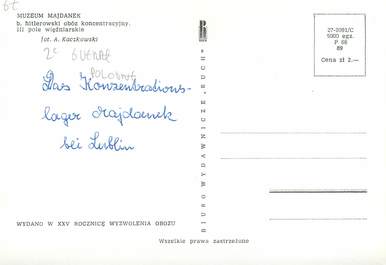 MUZEUM MAJDANEK
b. hitlerowski obóz koncentracyjny.
III pole więźniarskie
fot. A. Kaczkowski
POLOGNE
Das Konzentrations-
lager Majdanek
bei Lublin
WYDANO W XXV ROCZNICĘ WYZWOLENIA OBOZU
BIURO WYDAWNICZE „RUCH”
27-2091/C
5000 egz.
P 66
89
Cena zł 2.—
Wszelkie prawa zastrzeżone